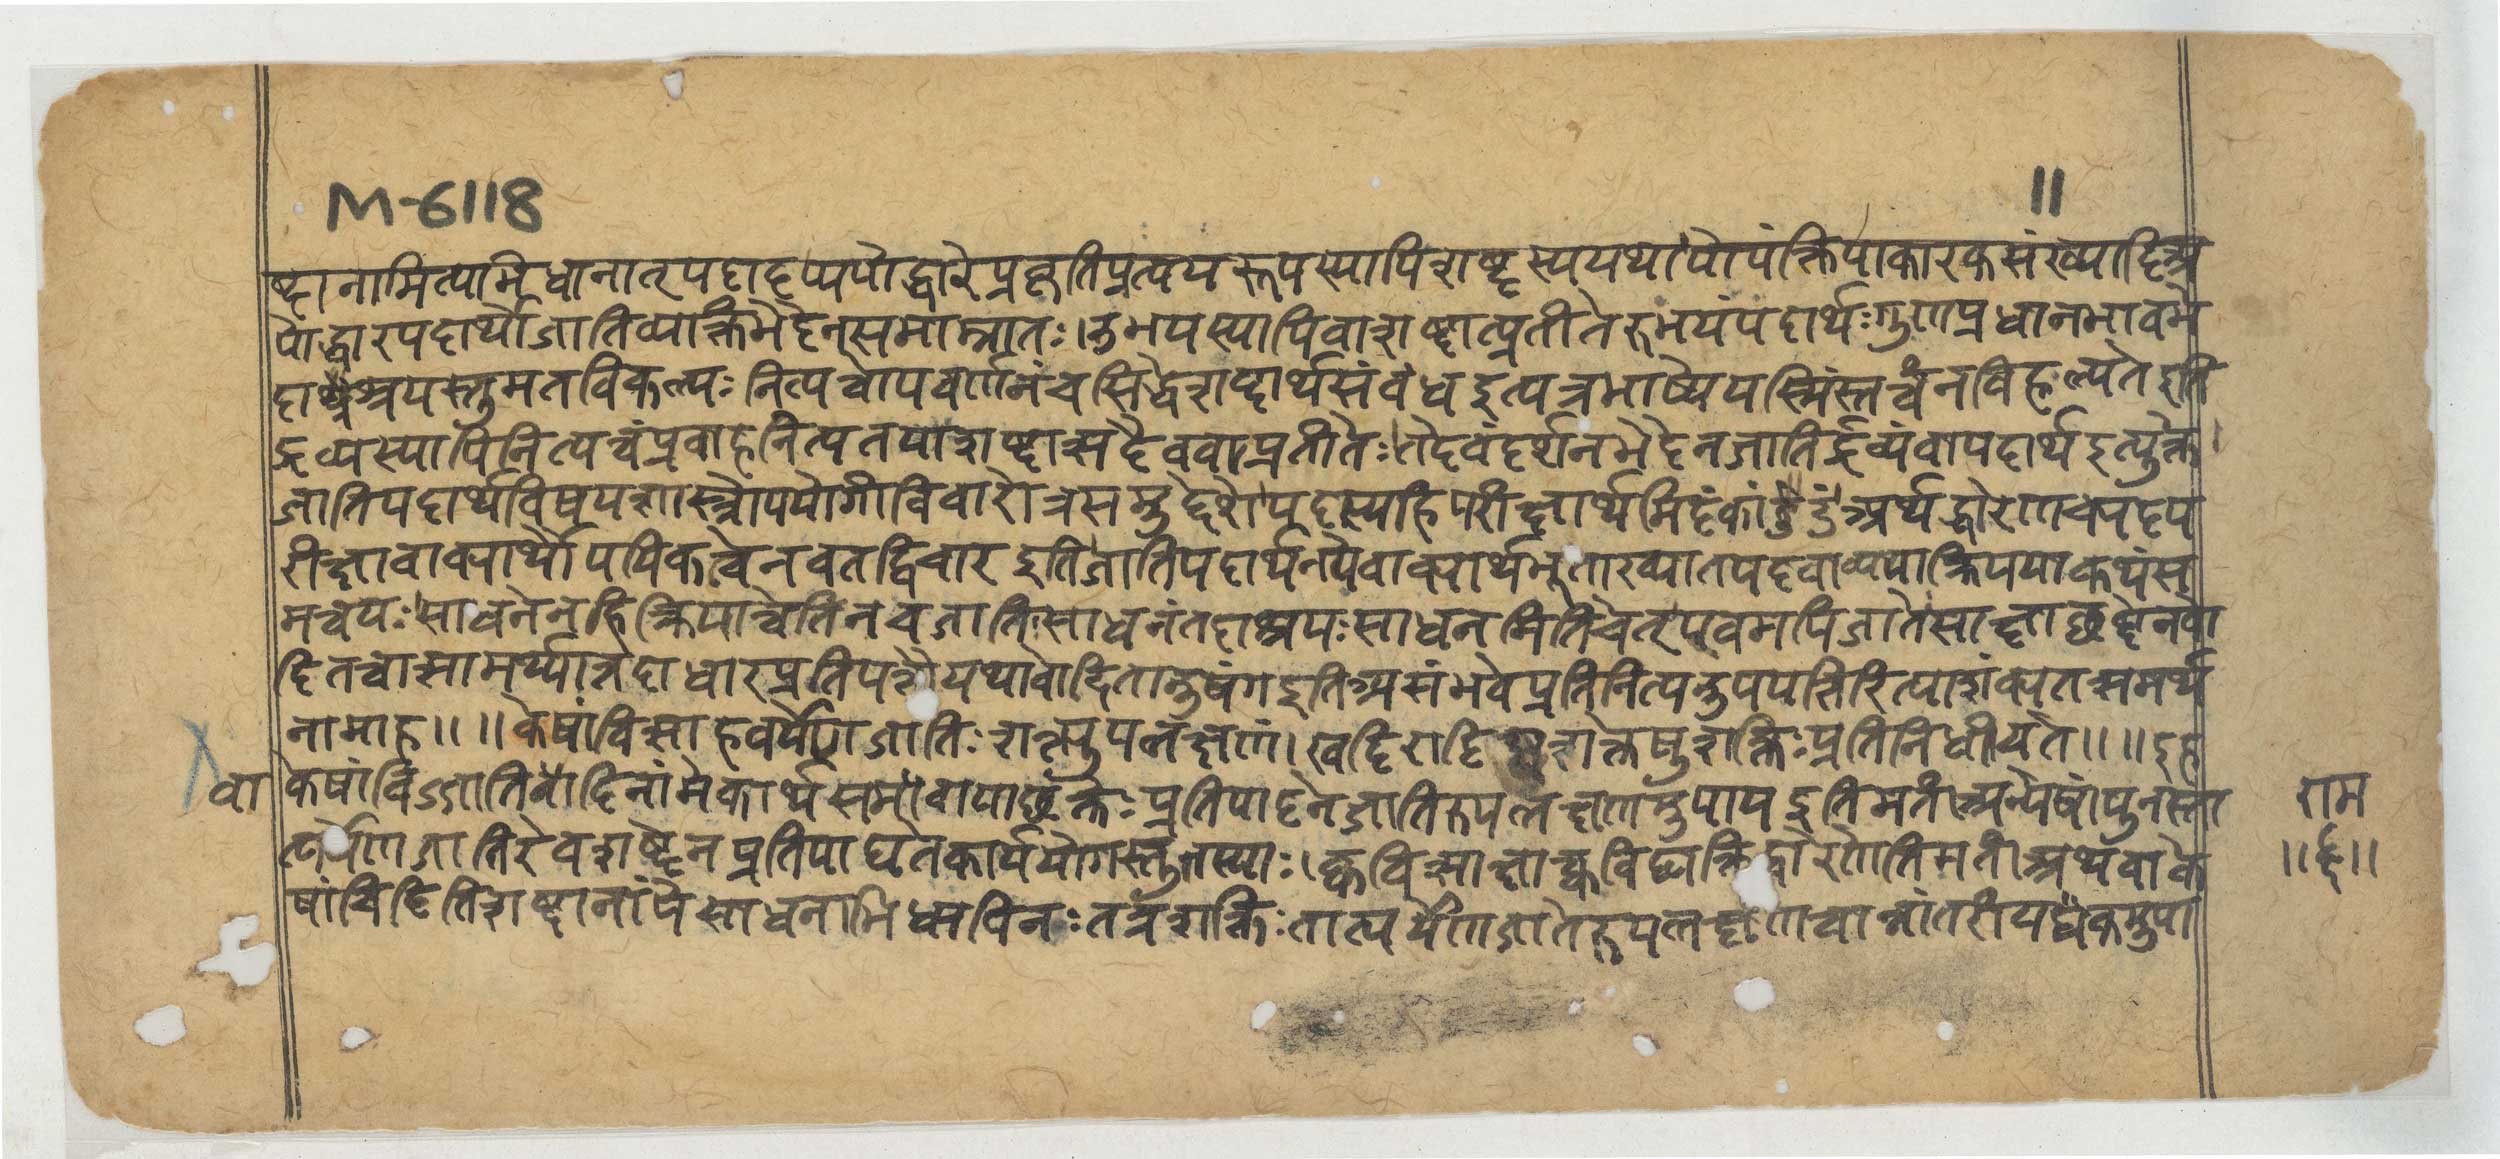 M-6118
11
ब्दानामित्यभिधानात्पदादप्यपोद्धारेप्रकृतिप्रत्ययरूपस्यापिशब्दस्ययथायोपंक्रियाकारकसंख्यादिअ
पोद्धारपदार्थोजातिव्याक्तिभेदेनसमाम्नातः।उभयस्यापिवाशब्दात्प्रतीतेरुभयंपदार्थःगुणप्रधानभावभे
दाश्रयस्तुमतविकल्पः नित्यत्वोपवर्णनंचसिद्धेशब्दार्थसंबंधइत्यत्रभाष्येयस्मिंस्तत्वंनविहल्यतेइति
द्रव्यस्यापिनित्यत्वंप्रवाहनित्यतयाशब्दात्सदैववाप्रतीतेः।तदेवंदर्शनभेदेनजातिर्द्रव्यंवापदार्थइत्युक्त।
जातिपदार्थविषयशास्त्रोपयोगीविचारोत्रसमुद्देशेपदस्यहिपरीक्षार्थमिदंकांडंअर्थद्वारेणचपदप
रीक्षावाक्यार्थोपयिकत्वेनवतद्विचारइतिजातिपदार्थनयेवाक्यार्थभूताख्यातपदवाच्ययाक्रिययाकथंस
मन्वयःसाधनेनहिक्रियान्वेतिनचजातिःसाधनंतदाश्रयःसाधनमितिचेत्एवमपिजातेसाक्षाछब्देनचो
दितत्वात्सामर्थ्यात्तदाधारप्रतिपत्तौयथाचोदितानुषंगइतिअसंभवेप्रतिनित्यनुपपत्तिरित्याशंक्यतत्समर्थ
नामाह॥ ॥केषांचित्साहचर्येणजातिःशत्त्युपलक्षणं।खदिरादिष्वशक्तेषुशक्तिःप्रतिनिधीयते॥ ॥इह
वा
केषांचिज्जातिवादिनांमेकार्थसमवायाछक्तेःप्रतिपादनेजातिरुपलक्षणमुपायइतिमतंअन्येषांपुनस्ता
राम
त्पर्येणजातिरेवशब्देनप्रतिपाद्यतेकार्ययोगस्तुतस्याः।क्वचित्साक्षात्क्वचिद्व्यक्तिद्वारेणेतिमतंअथवाके
षांचिदितिशब्दानांयेसाधनाभिधायिनःतत्रशक्तिःतात्पर्येणजातेरुपलक्षणंचानांतरीयकमुपा